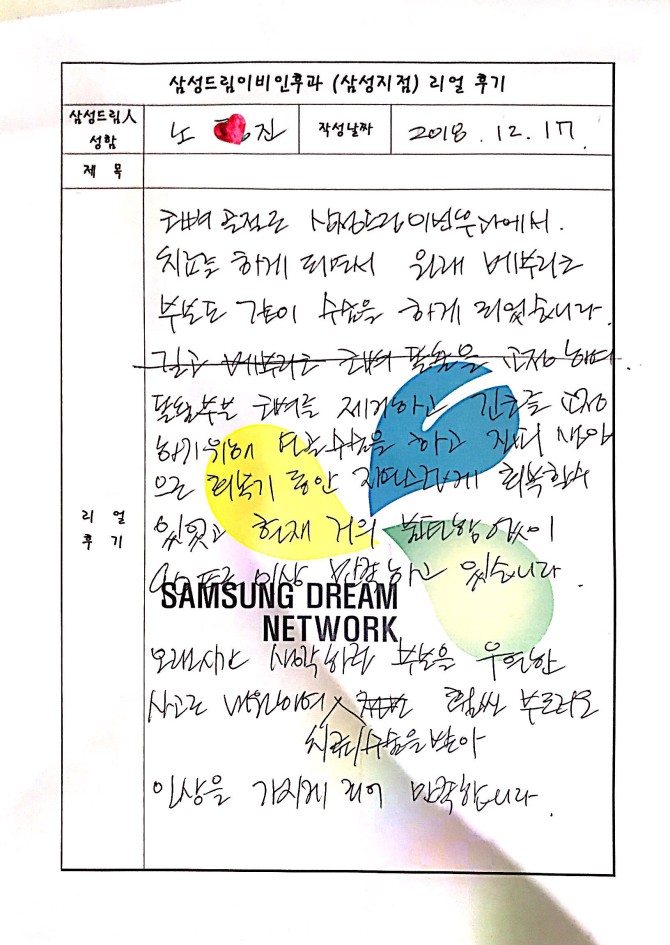 삼성드림이비인후과 (삼성지점) 리얼 후기
삼성드림人 성함
노 진
작성날짜
2018. 12. 17.
제 목
리 얼 후 기
코뼈 골절로 삼성드림이비인후과에서.
치료를 하게 되면서 원래 매부리코
부분도 같이 수술을 하게 되었습니다.
코뼈
부분 코뼈를 제거하고 긴코를 교정
하기위해 수술을 하고
으로 회복기 동안 자연스럽게 회복할수
있었고 현재 거의 불편함 없이
이상 만족하고 있습니다.
SAMSUNG DREAM
NETWORK
오랜시간 생각하던 부분을 우연한
사고로 내원하여 훨씬 부드러운
치료/수술을 받아
인상을 가지게 되어 만족합니다.